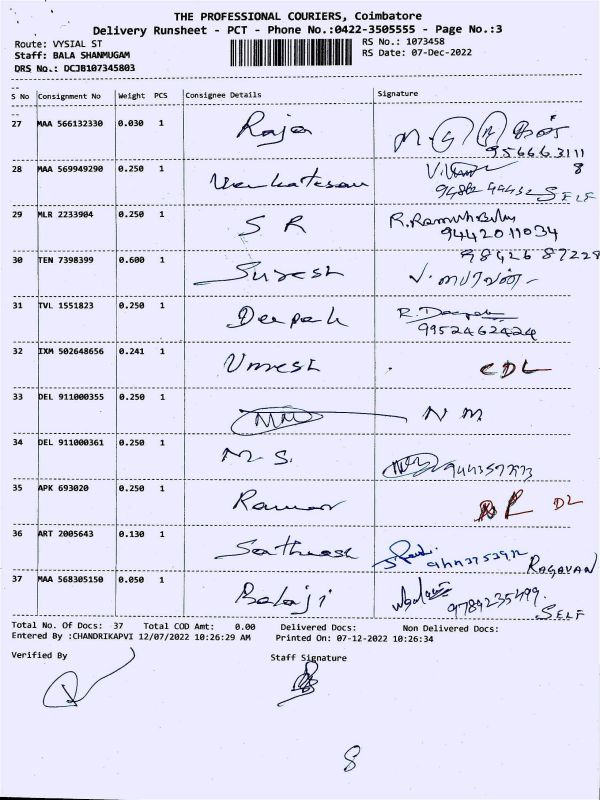 THE PROFESSIONAL COURIERS, Coimbatore
Delivery Runsheet - PCT - Phone No.:0422-3505555 - Page No.:3
Route: VYSIAL ST
RS No.: 1073458
Staff: BALA SHANMUGAM
RS Date: 07-Dec-2022
DRS No.: DCJB107345803
S No Consignment No Weight PCS Consignee Details Signature
27 MAA 566132330 0.030 1 Raja
956663111
8
28 MAA 569949290 0.250 1 Venkatesan
SELF
29 MLR 2233904 0.250 1 S R
9442011034
30 TEN 7398399 0.600 1 Suresh 9842687228
31 TVL 1551823 0.250 1 Deepak R. Deepak
9952462424
32 IXM 502648656 0.241 1 Umesh CDL
33 DEL 911000355 0.250 1 N M
34 DEL 911000361 0.250 1 M. S.
35 APK 693020 0.250 1 Raman DL
36 ART 2005643 0.130 1 Satheesh RAGAVAN
37 MAA 568305150 0.050 1 Balaji 9789235499
SELF
Total No. Of Docs: 37 Total COD Amt: 0.00 Delivered Docs: Non Delivered Docs:
Entered By :CHANDRIKAPVI 12/07/2022 10:26:29 AM Printed On: 07-12-2022 10:26:34
Verified By Staff Signature
8